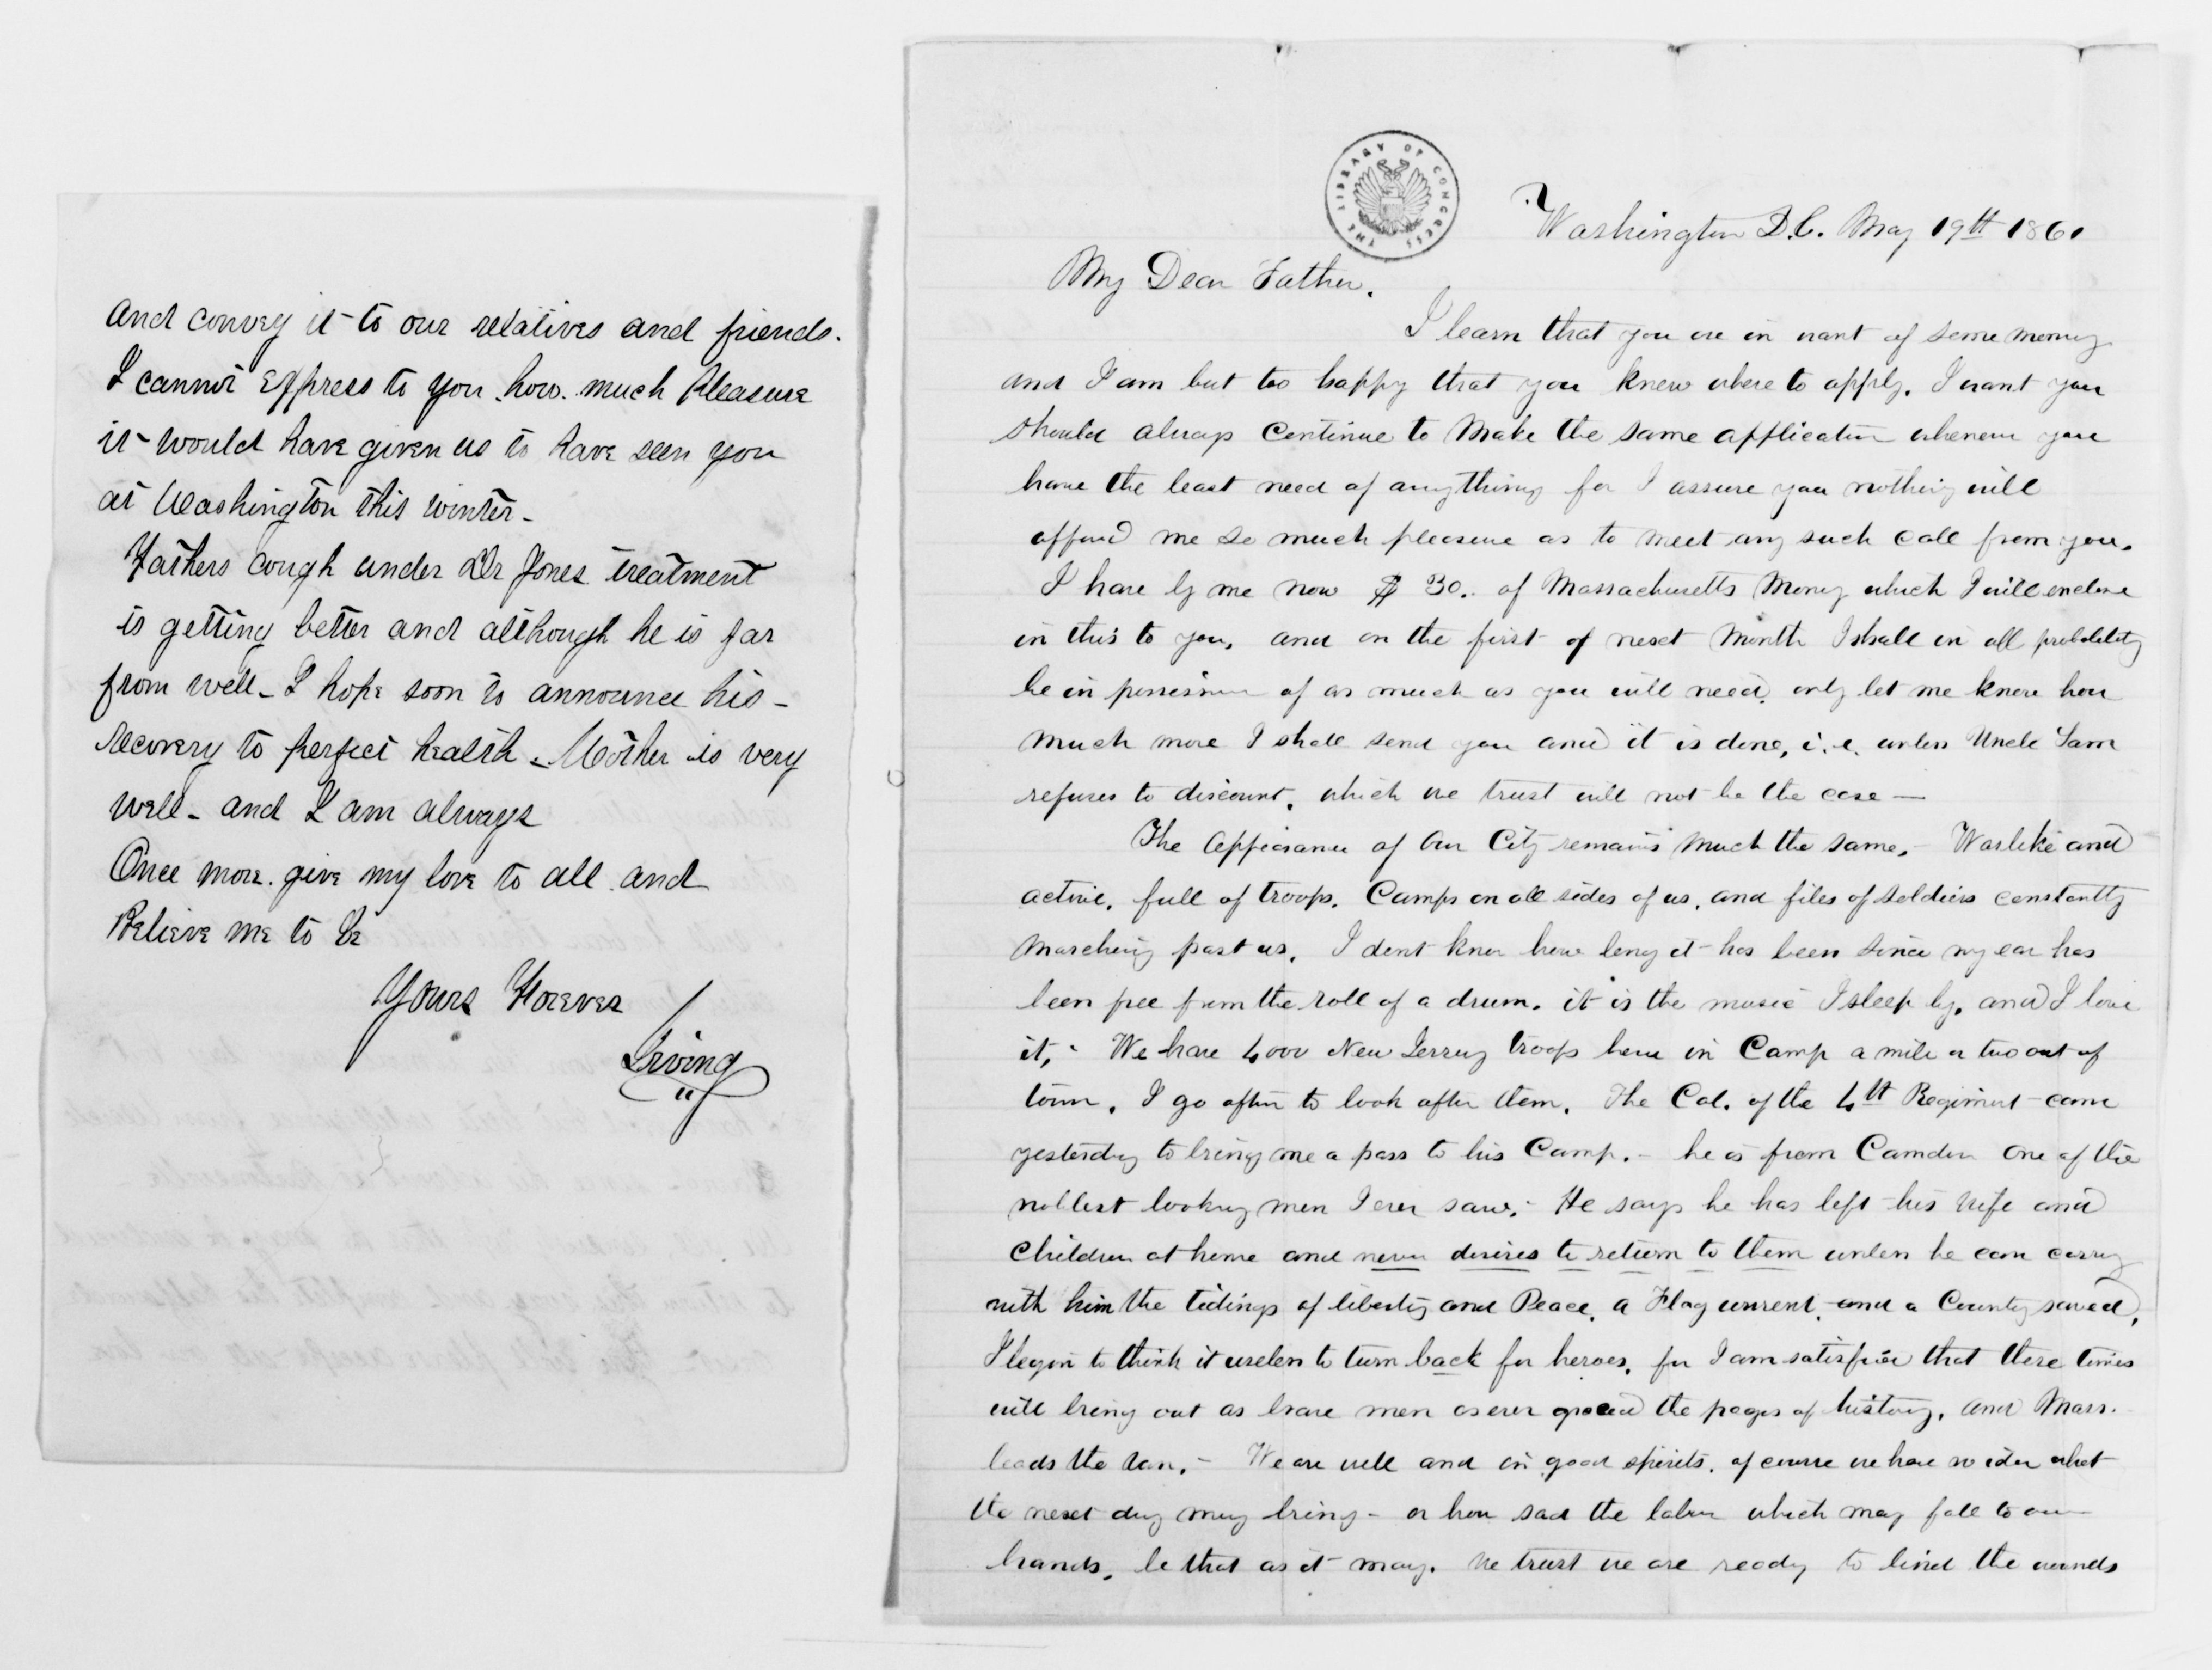 and convey it to our relatives and friends.
I cannot express to you how much pleasure
it would have given us to have seen you
at Washington this winter -
Fathers cough under Dr Jones treatment
is getting better and although he is far
from well - I hope soon to announce his -
recovery to perfect health - Mother is very
well - and I am always
Once more give my love to all and
Believe me to be
Yours Forever
Irving
THE LIBRARY OF CONGRESS
Washington D.C. May 19th 1861
My Dear Father.
I learn that you are in want of some money
and I am but too happy that you knew where to apply. I want you
should always continue to make the same application whenever you
have the least need of anything for I assure you nothing will
afford me so much pleasure as to meet any such call from you.
I have by me now $30.. of Massachusetts Money which I will enclose
in this to you, and on the first of next Month I shall in all probability
be in possession of as much as you will need, only let me know how
much more I shall send you and it is done, i.e. unless Uncle Sam
refuses to discount, which we trust will not be the case —
The appearance of our City remains much the same, - Warlike and
active, full of troops, Camps on all sides of us, and files of soldiers constantly
marching past us, I dont know how long it has been since my ear has
been free from the roll of a drum, it is the music I sleep by, and I love
it, - We have 4000 New Jersey troops here in Camp a mile or two out of
town, I go often to look after them, The Col. of the 4th Regiment came
yesterday to bring me a pass to his Camp, - he is from Camden one of the
noblest looking men I ever saw, - He says he has left his wife and
Children at home and never desires to return to them unless he can carry
with him the tidings of liberty and Peace, a Flag unrent, and a Country saved,
I begin to think it useless to turn back for heroes, for I am satisfied that these times
will bring out as brave men as ever graced the pages of history, and Mass.
leads the van, - We are well and in good spirits, of course we have no idea what
the next day may bring - or how sad the labor which may fall to our
hands, be that as it may, we trust we are ready to bind the wounds